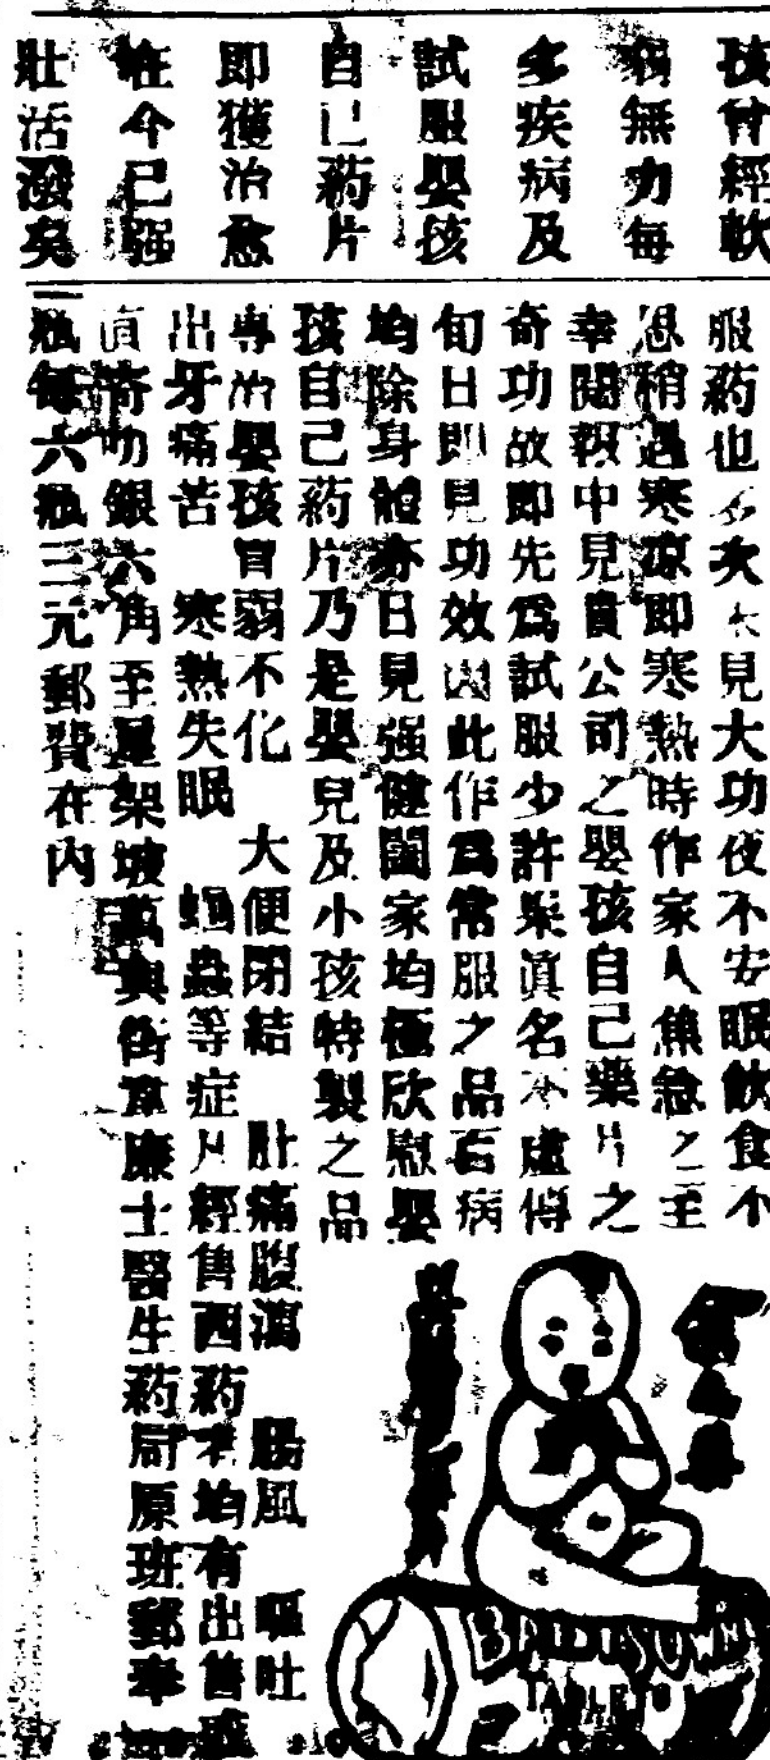 孩曾經軟
弱無力每
多疾病及
試服嬰孩
自己药片
即獲治愈
在今已强
壯活潑矣
服药也多次未見大功夜不安眠飲食不
思稍遇寒凉即寒熱時作家人焦急之至
幸閱報中見貴公司之嬰孩自己藥片之
奇功故即先爲試服少許果眞名不虛傳
旬日即見功效因此作爲常服之品百病
均除身體亦日見强健闔家均極欣慰嬰
孩自己药片乃是嬰兒及小孩特製之品
專治嬰孩胃弱不化 大便閉結 肚痛腹瀉 腸風 嘔吐
出牙痛苦 寒熱失眠 蛔蟲等症凡經售西药者均有出售
直寄叻銀六角至星架坡 街韋廉士醫生药局原班郵奉
瓶每六瓶三元郵費在内
BABY'S OWN
TABLETS